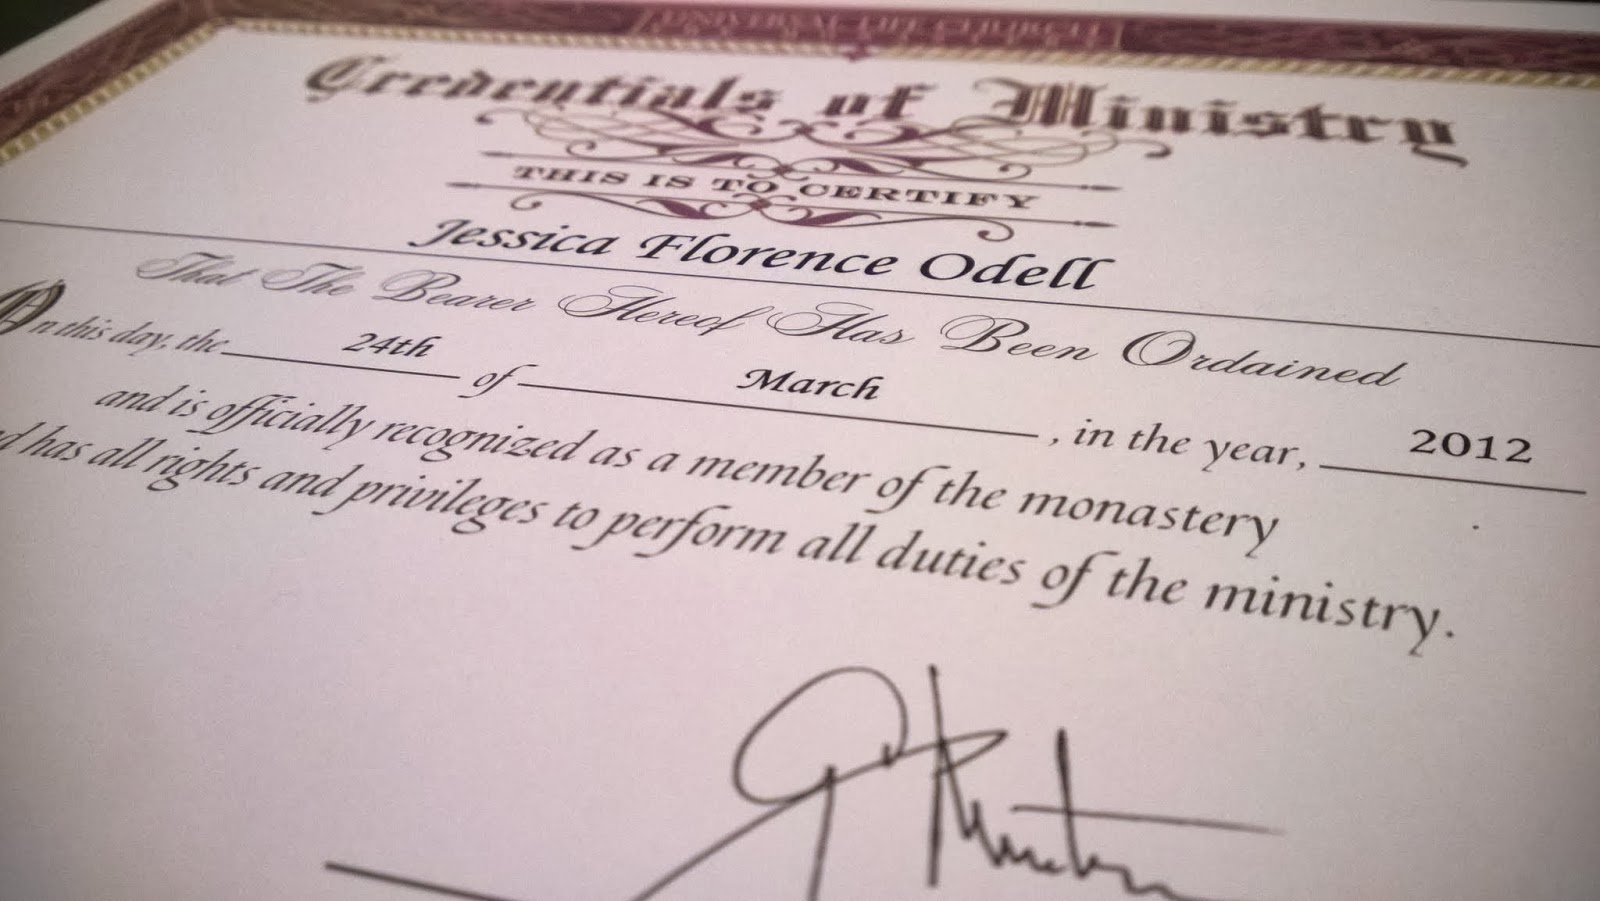 Credentials of Ministry
THIS IS TO CERTIFY
Jessica Florence Odell
That The Bearer Hereof Has Been Ordained
On this day, the 24th of March, in the year, 2012
and is officially recognized as a member of the monastery
has all rights and privileges to perform all duties of the ministry.